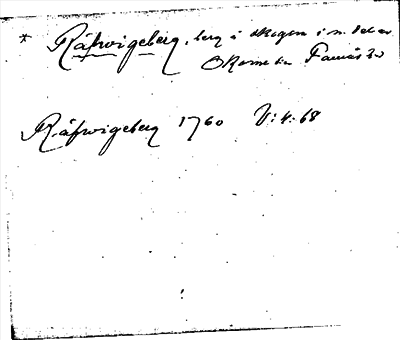 * Räfwigeberg, berg i skogen i n. delen
Okome sn Faurås hd
Räfwigeberg 1760 V:4:68